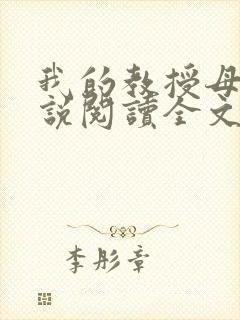 我的教授母
說閱讀全文
李彤章